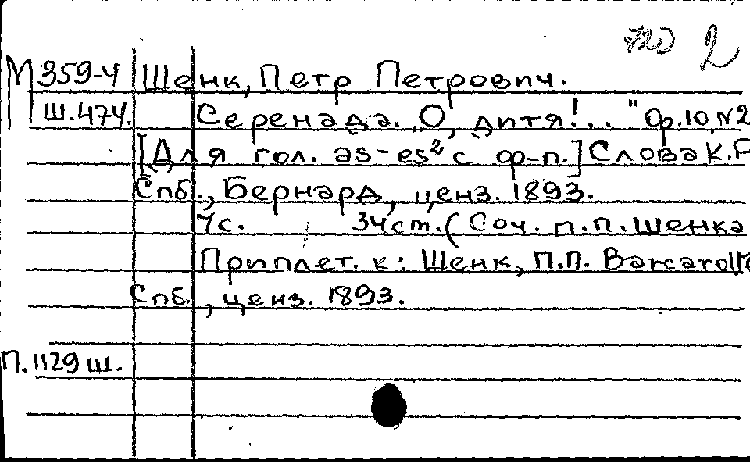 2
М 359-4 Шенк, Петр Петрович.
Ш.474. Серенада. „О, дитя!.." Ор.10, N2
[Для гол. as-es² с ф-п.] Слова К.Р
Спб., Бернард, ценз. 1893.
7с. 34ст. (Соч. П.П. Шенка
Приплет. к: Шенк, П.П.
Спб., ценз. 1893.
П.1129 Ш.